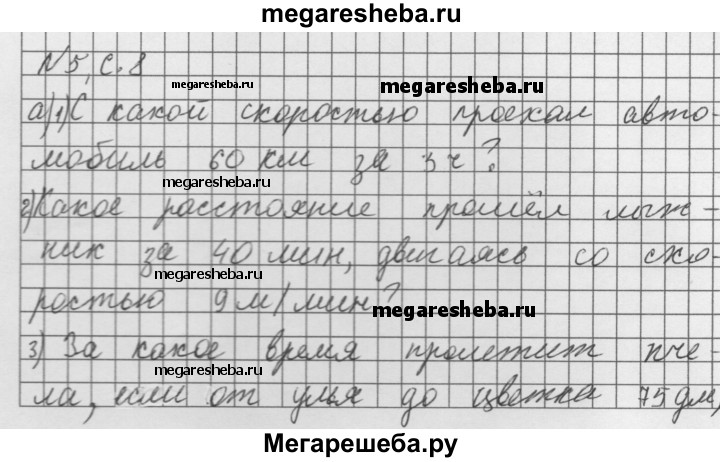 megaresheba.ru
N5, с. 8
megaresheba.ru
megaresheba.ru
а) 1) С какой скоростью проехал авто-
мобиль 60 км за 3 ч?
megaresheba.ru
2) Какое расстояние прошёл лыж-
ник за 40 мин, двигаясь со ско-
megaresheba.ru
ростью 9 м/мин?
megaresheba.ru
3) За какое время пролетит пче-
megaresheba.ru
ла, если от улья до цветка 75 дм,
Мегарешеба.ру